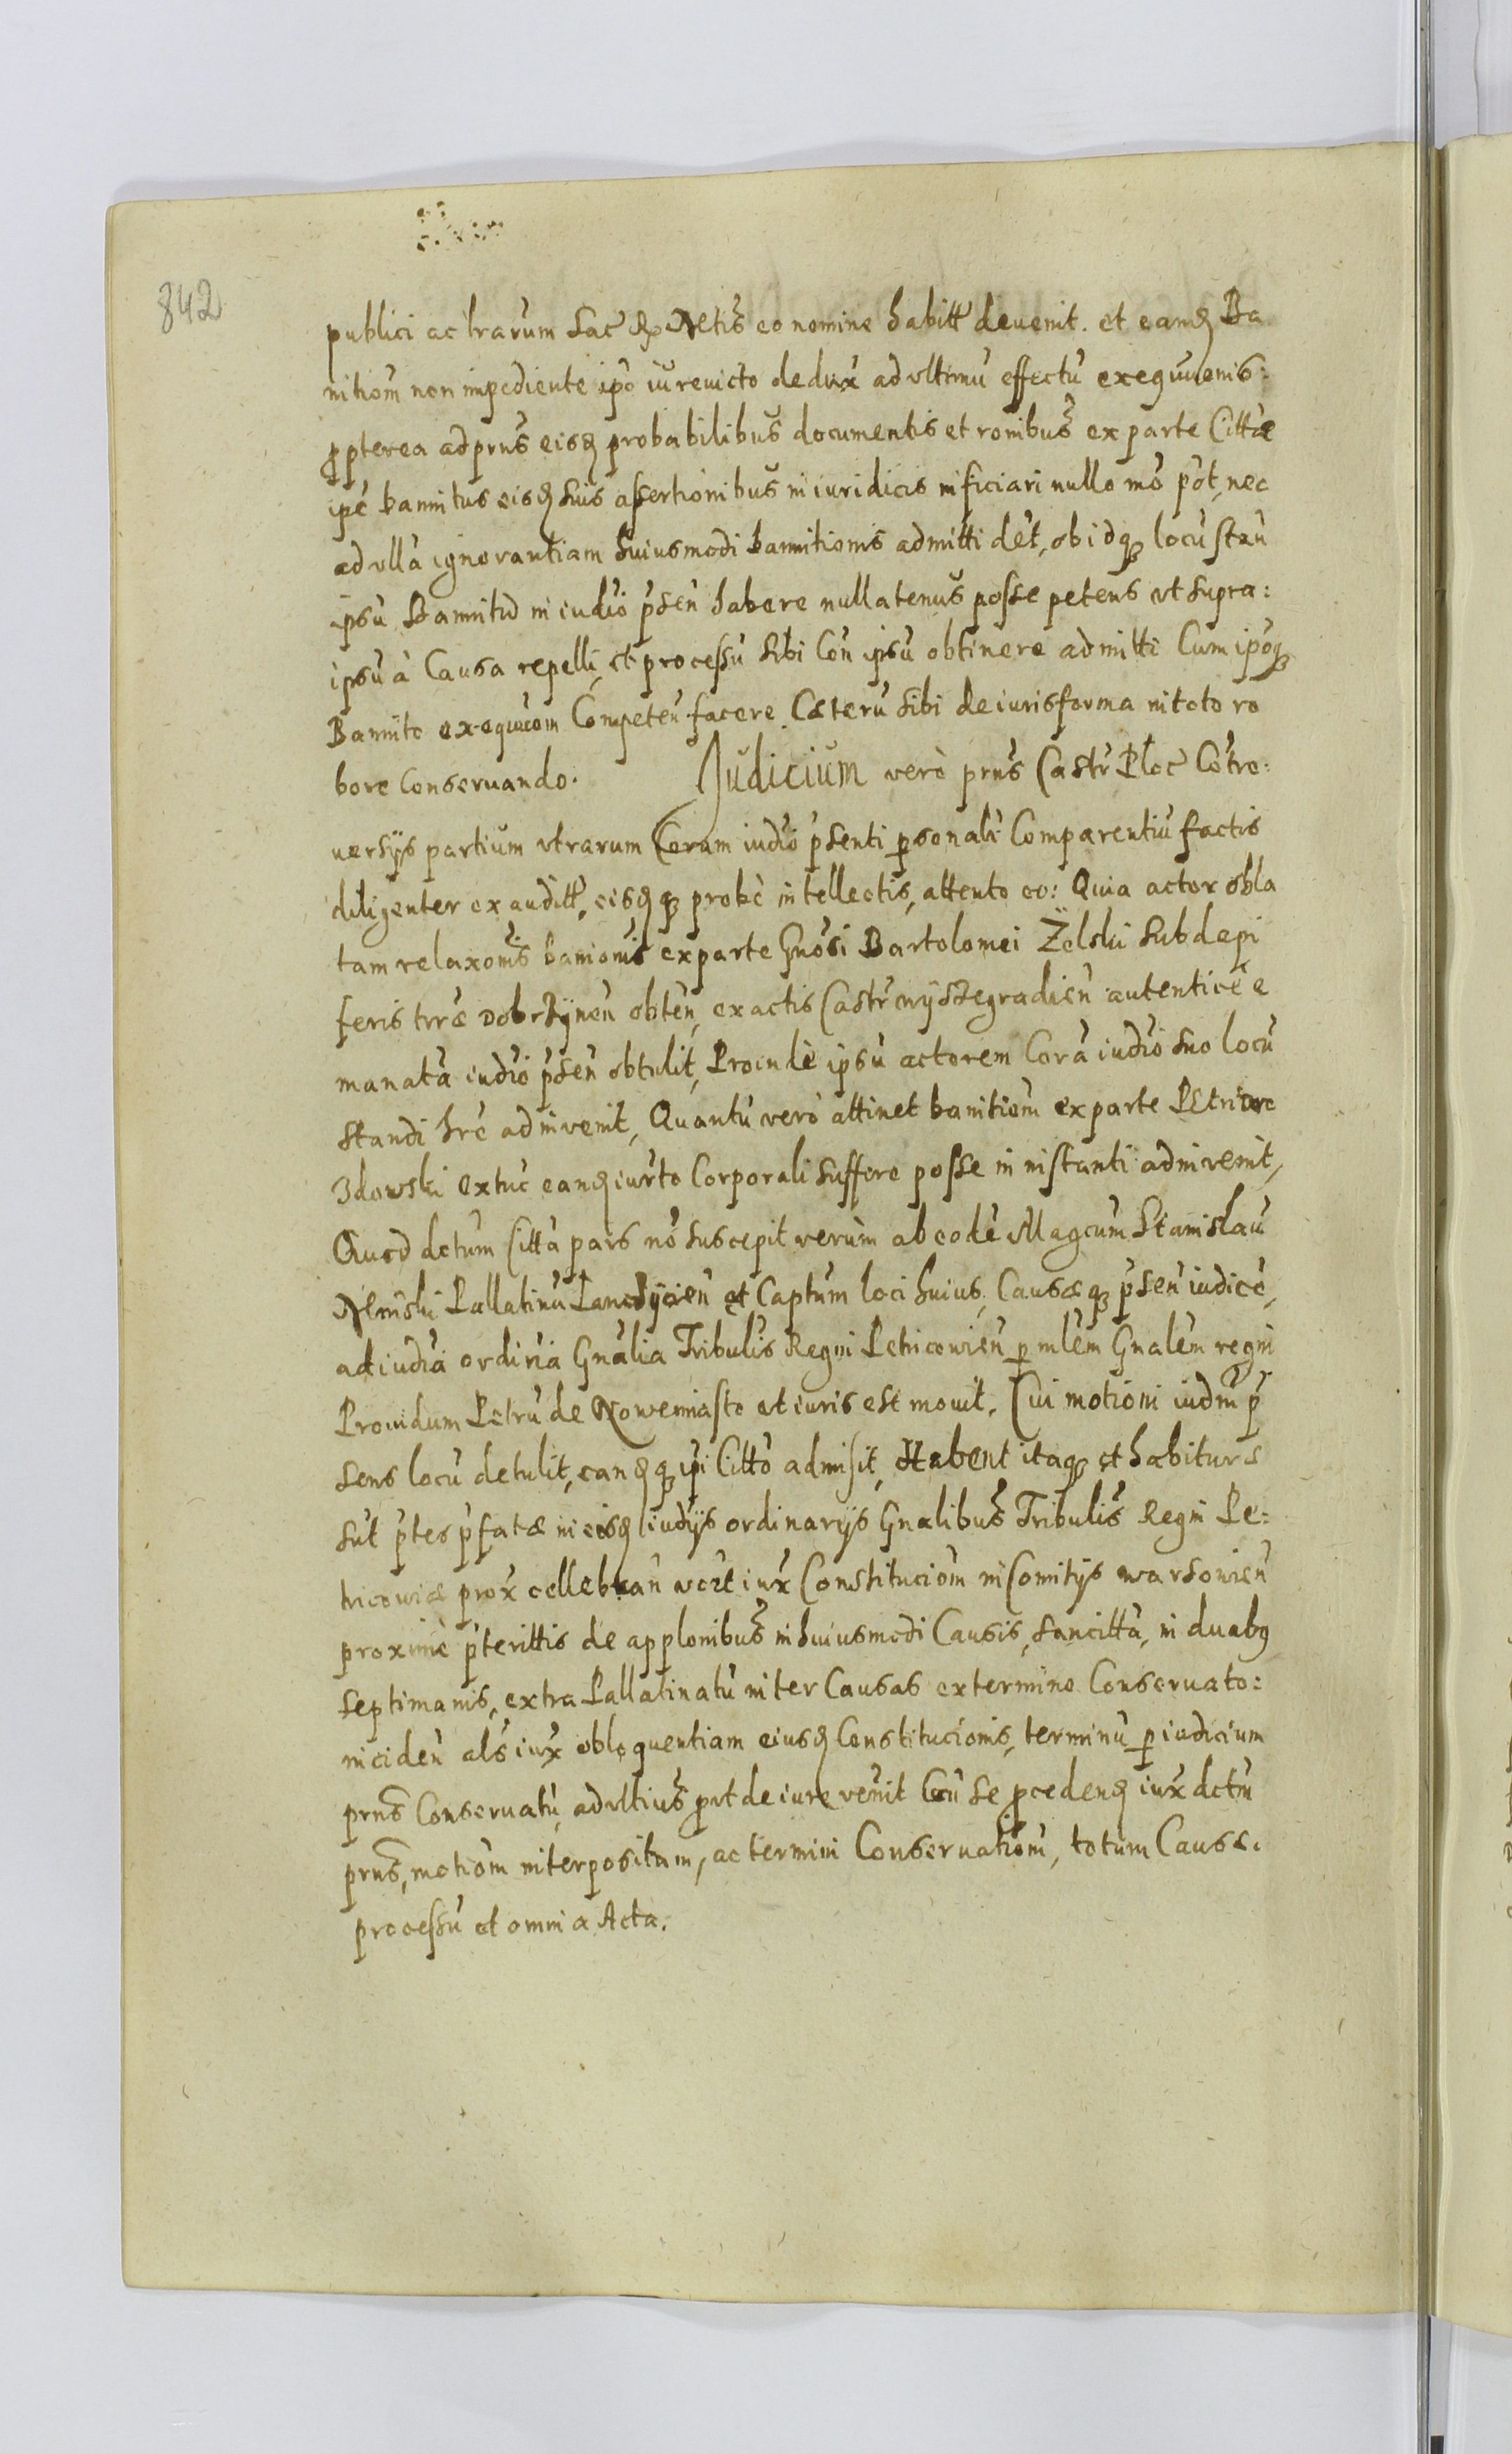 842
publici ac lrarum Sac̃ Rx Mtis eo nomine habitt devenit. et eamq Ba
nitiom̃ non impediente ipõ iurevicto dedux̃ ad vltimũ effectũ exequuenis:
ꝓpterea ad prns̃ eisq probabilibus̃ documentis et ronibus̃ ex parte Cittæ
ipẽ bannitus eisq suis assertionibus in iuridicis inficiari nullo mõ põt, nec
ad vllã ignorantiam huiusmodi bannitionis admitti dẽt, ob idq locũ stañ
ipsũ Bannitũ in iudiõ p̃señ habere nullatenus posse petens vt supra:
ipsũ à Causa repelli, et processũ sibi Coñ ipsũ obtinere admitti Cum ipõq
Bannito exequuom̃ Competeñ facere. Cæterũ sibi de iuris forma in toto ro
bore Conservando. Judicium verò prns̃ Castr̃ Ploc̃ Cõtro:
versijs partium vtrarum Coram iudiõ p̃senti p̱sonalr̃ Comparentiũ factis
diligenter exauditt, eisq q probè intellectis, attento eo: Quia actor obla
tam relaxom̃s banionis ex parte Gnõsi Bartolomei Żelski Subdapi
feris trræ Dobrzyneñ obteñ, ex actis Castr̃ wyszegradieñ autenticẽ e
manatã iudiõ p̃señ obtulit, Proindè ipsũ actorem Corã iudiõ suo locũ
standi hrẽ adinvenit, Quantũ verò attinet banitiom̃ ex parte Petri
zdowski extuc̃ eanq iurto Corporali suffere posse in instanti adinvenit,
Quod dctum Citta pars nõ suscepit verùm ab eodẽ Magcum Stanislaũ
Minski Pallatinũ Lancycieñ et Captum̃ loci huius, Causæq p̃señ iudicẽ,
ad iudia ordiria Gnãlia Tribulis̃ Regni Petricovieñ p̱ mlem̃ Gnalem̃ regni
Providum Petrũ de Nowemiasto vt iuris est movit. Cui motioni iudm̃ p̃
sens locũ detulit, eanq q ipi Cittõ admisit, Habent itaq et habituræ
sut p̃tes p̃fatæ in eisq iudijs ordinarijs Gnalibus̃ Tribulis̃ Regni Pe:
tricoviæ prox̃ cellebrañ iux̃ Constituciom̃ in Comitijs warsovieñ
proximè p̃terittis de applonibus̃ in huiusmodi Causis, sancittã, in duabq
septimanis, extra Pallatinatũ inter Causas ex termino Conservato:
incideñ als̃ iux̃ obloquentiam eiusq Constitucionis, terminũ p̱ iudicium
prns̃ Conservatũ, ad vltius̃ ꝓut de iure venit Coñ se ꝓcedenq iux̃ dctm̃
prns̃, motiom̃ interpositam, ac termini Conservatiom̃, totum Causæ
processũ et omnia Acta.